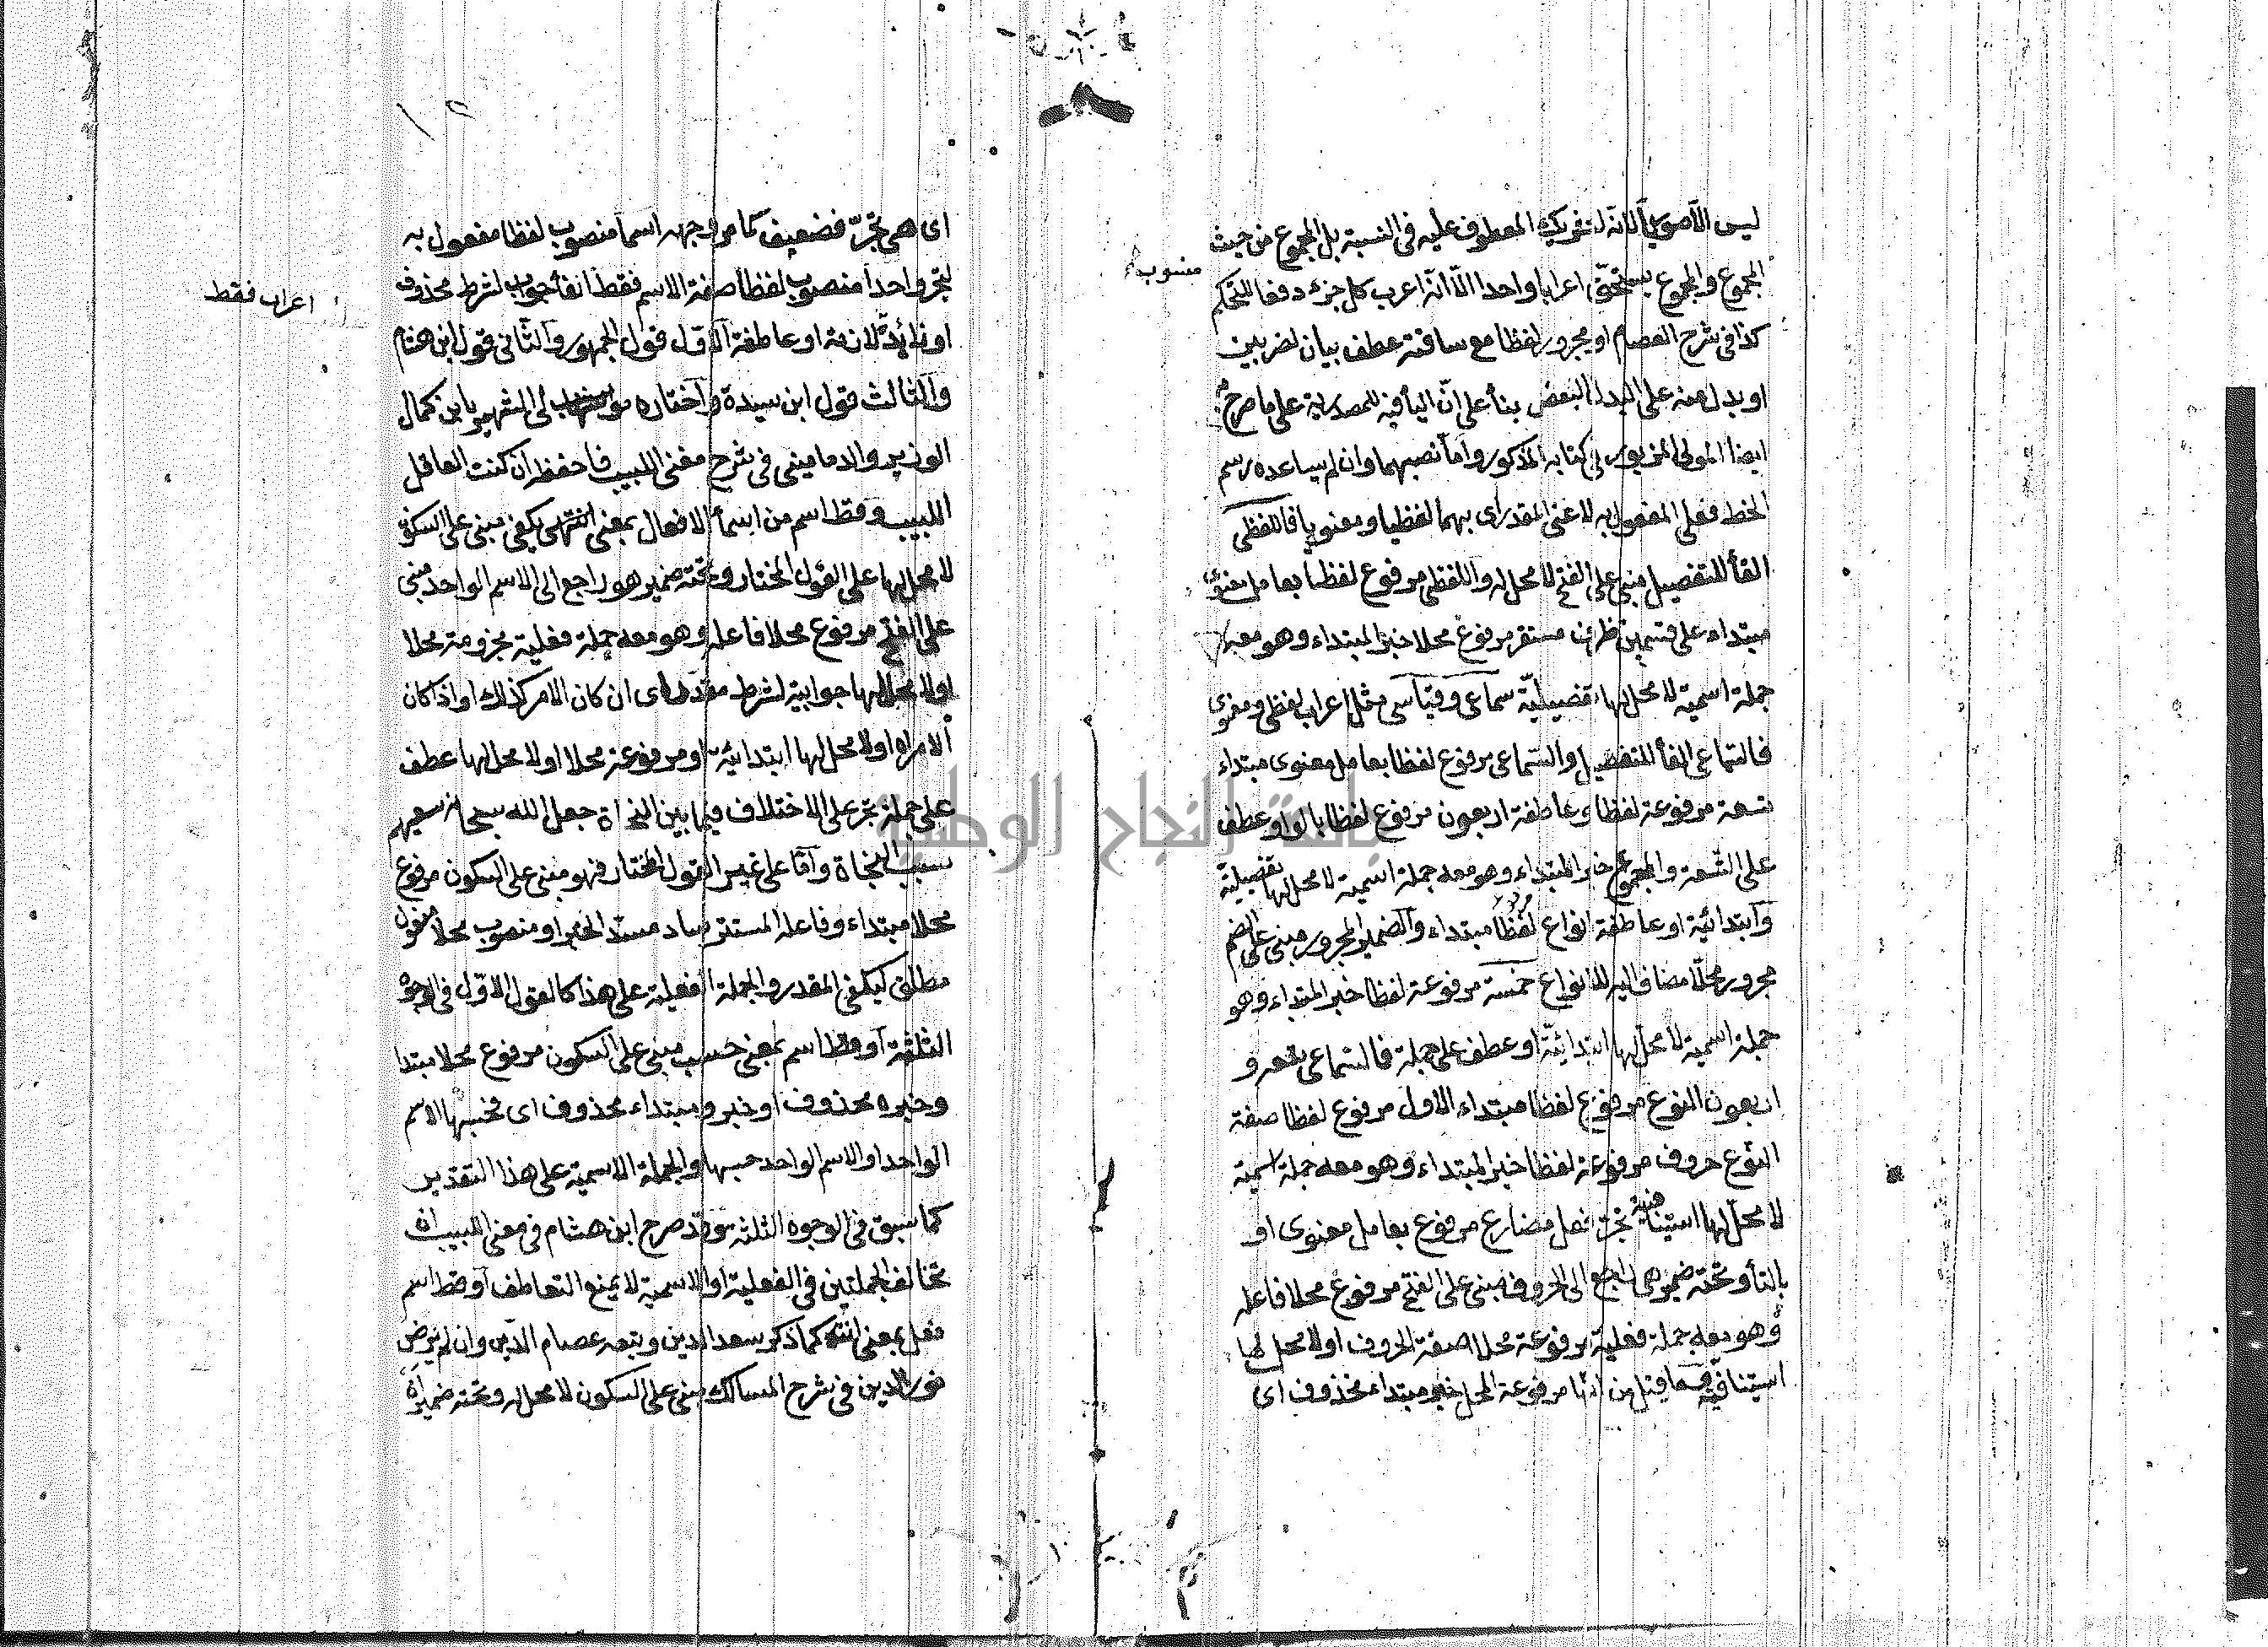 ليس الا صوريا لانه لتشريك المعطوف عليه فى النسبة بل المجموع من حيث
منسوب
المجموع والمجموع يستحق اعرابا واحدا الا انه اعرب كل جزء دفعا للتحكم
كذا فى شرح العصام او مجرور لفظا مع ساقته عطف بيان لضربين
او بدل منه على البدل البعض بناء على ان الياء فيه للمصدرية على ما صرح به
ايضا المولى المزبور فى كتابه المذكور واما نصبهما وان لم يساعده رسم
الخط فعلى المفعول به لاعنى المقدر اى بهما لفظيا ومعنويا فاللفظى
الفاء للتفصيل مبنى على الفتح لا محل له واللفظى مرفوع لفظا بعامل معنوى
مبتداء على قسمين ظرف مستقر مرفوع محلا خبر المبتداء وهو معه
جملة اسمية لا محل لها تفصيلية سماعى وقياسى مثل اعراب لفظى ومعنوى
فالسماعى الفاء للتفصيل والسماعى مرفوع لفظا بعامل معنوى مبتداء
تسعة مرفوعة لفظا وعاطفة اربعون مرفوع لفظا بالواو عطف
على التسعة والمجموع خبر المبتداء وهو معه جملة اسمية لا محل لها تفصيلية
وابتدائية او عاطفة انواع مرفوع لفظا مبتداء والضمير المجرور مبنى على الضم
مجرور محلا مضاف اليه للانواع خمسة مرفوعة لفظا خبر المبتداء وهو
جملة اسمية لا محل لها ابتدائية او عطف على جملة فالسماعى تسعة و
اربعون النوع مرفوع لفظا مبتداء الاول مرفوع لفظا صفة
النوع حروف مرفوعة لفظا خبر المبتداء وهو معه جملة اسمية
لا محل لها استينافية تجر فعل مضارع مرفوع بعامل معنوى او
بالتاء وتحته ضمير هى راجع الى الحروف مبنى على الفتح مرفوع محلا فاعله
وهو معه جملة فعلية مرفوعة محلا صفة الحروف او لا محل لها
استينافية فما قيل من انها مرفوعة المحل خبر مبتداء محذوف اى
اى هى تجر فضعيف كما مر وجهه اسما منصوب لفظا مفعول به
لتجر واحدا منصوب لفظا صفة الاسم فقط الفاء جواب لشرط محذوف
اعراب فقط
او زائدة لازمة او عاطفة الاول قول الجمهور والثانى قول ابن هشام
والثالث قول ابن سيدة واختاره المولى الشهير بابن كمال
الوزير والدمامينى فى شرح مغنى اللبيب فاحفظ ان كنت العاقل
اللبيب وقط اسم من اسماء الافعال بمعنى انته يكفى مبنى على السكون
لا محل لها على القول المختار وتحته ضمير هو راجع الى الاسم الواحد مبنى
على الفتح مرفوع محلا فاعله وهو معه جملة فعلية مجزومة محلا
او لا محل لها جوابية لشرط مقدر اى ان كان الامر كذلك او اذا كان
الامر او لا محل لها ابتدائية او مرفوعة محلا او لا محل لها عطف
على جملة تجر على الاختلاف فيما بين النحاة جعل الله سبحانه سعيهم
سبب النجاة واما على غير القول المختار فهو مبنى على السكون مرفوع
محلا مبتداء وفاعله المستتر ساد مسد الخبر او منصوب محلا مفعول
مطلق ليكفى المقدر والجملة الفعلية على هذا كالقول الاول فى الوجوه
الثلثة او قط اسم بمعنى حسب مبنى على السكون مرفوع محلا مبتدا
وخبره محذوف او خبر ومبتداء محذوف اى فحسبها الاسم
الواحد او الاسم الواحد حسبها والجملة الاسمية على هذا التقدير
كما سبق فى الوجوه الثلثة وقد صرح ابن هشام فى مغنى اللبيب ان
تخالف الجملتين فى الفعلية او الاسمية لا يمنع التعاطف او قط اسم
فعل بمعنى انته كما ذكر سعد الدين وتبعه عصام الدين وان لم يرض
نور الدين فى شرح المسالك مبنى على السكون لا محل له وتحته ضمير ان